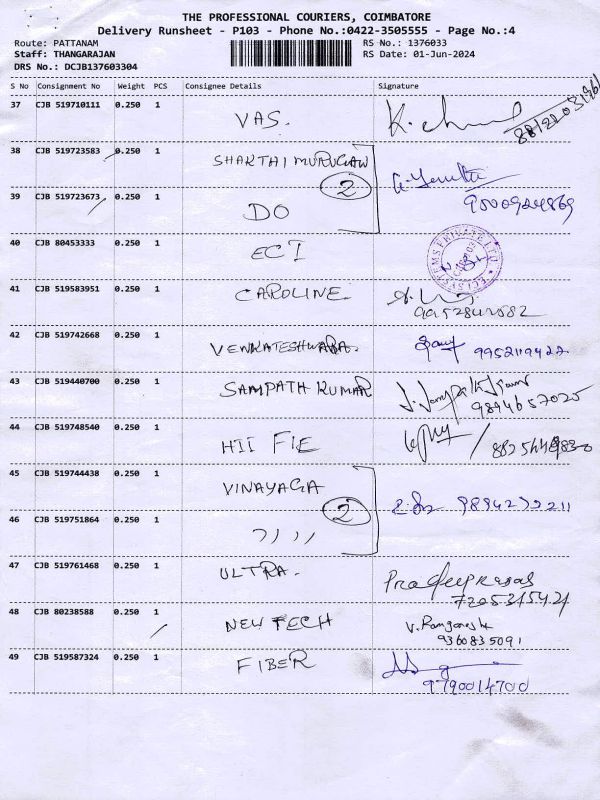 THE PROFESSIONAL COURIERS, COIMBATORE
Delivery Runsheet - P103 - Phone No.:0422-3505555 - Page No.:4
Route: PATTANAM
RS No.: 1376033
Staff: THANGARAJAN
RS Date: 01-Jun-2024
DRS No.: DCJB137603304
S No Consignment No Weight PCS Consignee Details Signature
37 CJB 519710111 0.250 1 VAS.
38 CJB 519723583 0.250 1 SHAKTHI MURUGAN
2
39 CJB 519723673 0.250 1 DO
40 CJB 80453333 0.250 1 ECI
41 CJB 519583951 0.250 1 CAROLINE
42 CJB 519742668 0.250 1 VENKATESHWARA. 9952119422
43 CJB 519440700 0.250 1 SAMPATH KUMAR
9894657025
44 CJB 519748540 0.250 1 HII FIE
45 CJB 519744438 0.250 1 VINAYAGA
2
46 CJB 519751864 0.250 1 ,,,,
47 CJB 519761468 0.250 1 ULTRA.
48 CJB 80238588 0.250 1 NEW TECH
9360835091
49 CJB 519587324 0.250 1 FIBER
9790014700